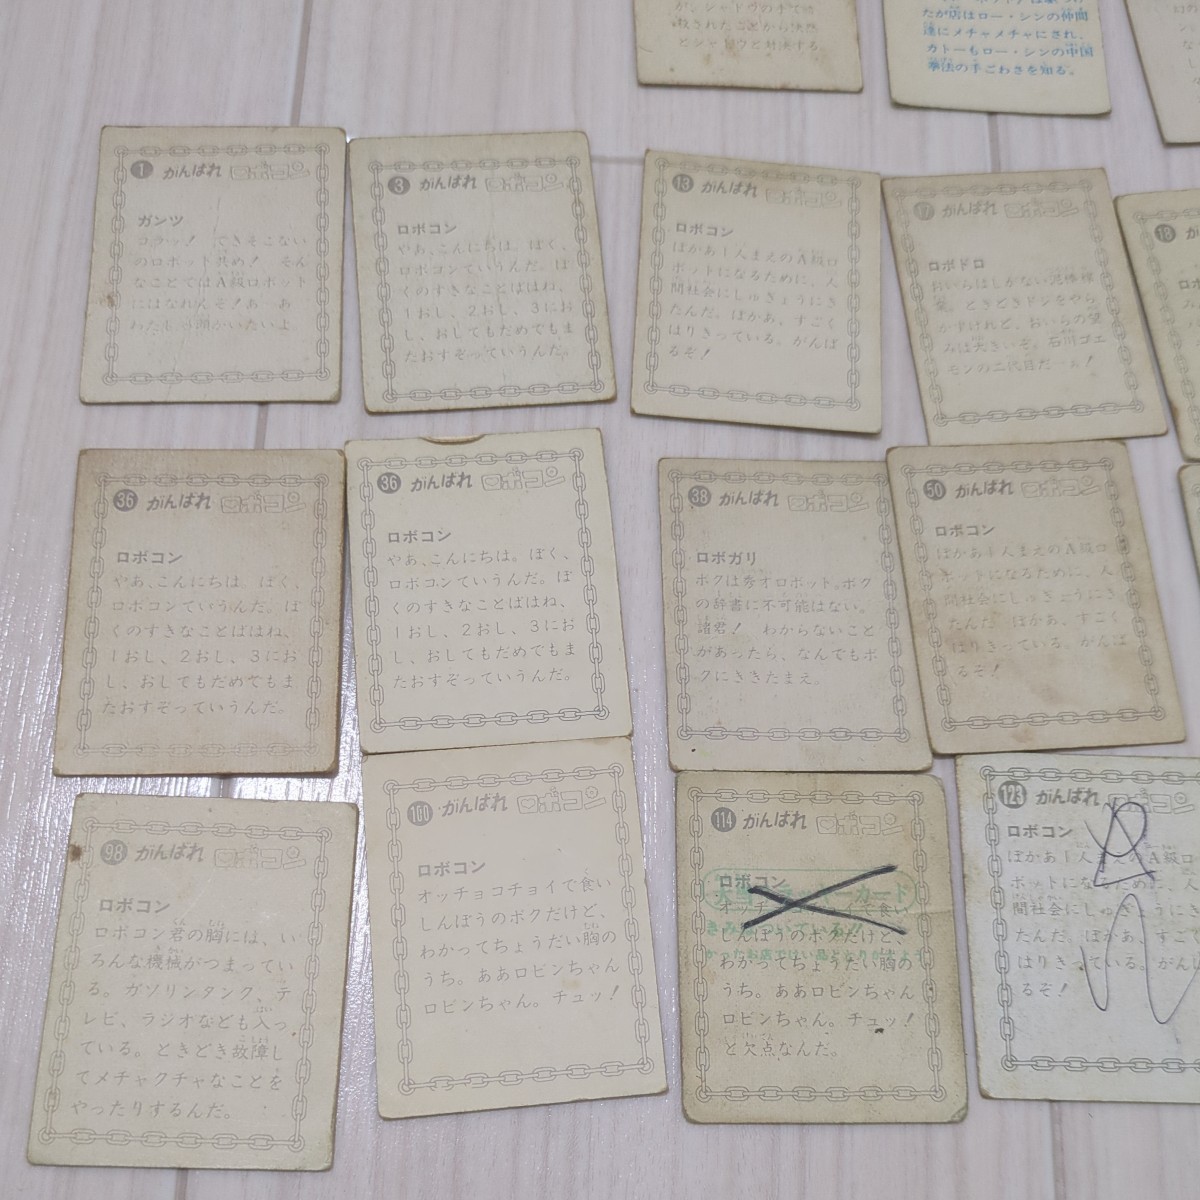 が、シャドウの手で
とシャドウと対決する。
たが店はロー・シンの仲間
達にメチャメチャにされ、
カトーもロー・シンの中国
拳法の手ごわさを知る。
1 がんばれ ロボコン
ガンツ
コラッ! できそこない
のロボット共め! そん
なことではA級ロボット
にはなれんぞ!あーあ
わたしゃ頭がいたいよ。
3 がんばれ ロボコン
ロボコン
やあ、こんにちは。ぼく、
ロボコンていうんだ。ぼ
くのすきなことばはね、
1おし、2おし、3にお
し、おしてもだめでもま
たおすぞっていうんだ。
13 がんばれ ロボコン
ロボコン
ぼかあ1人まえのA級ロ
ボットになるために、人
間社会にしゅぎょうにき
たんだ。ぼかあ、すごく
はりきっている。がんば
るぞ!
17 がんばれ ロボコン
ロボドロ
おいらはしがない泥棒稼
業。ときどきドジをやら
かすけれど、おいらの望
みは大きいぞ。石川ゴエ
モンの二代目だーぁ!
18
36 がんばれ ロボコン
ロボコン
やあ、こんにちは。ぼく、
ロボコンていうんだ。ぼ
くのすきなことばはね、
1おし、2おし、3にお
し、おしてもだめでもま
たおすぞっていうんだ。
36 がんばれ ロボコン
ロボコン
やあ、こんにちは。ぼく、
ロボコンていうんだ。ぼ
くのすきなことばはね、
1おし、2おし、3にお
し、おしてもだめでもま
たおすぞっていうんだ。
38 がんばれ ロボコン
ロボガリ
ボクは秀才ロボット。ボク
の辞書に不可能はない。
諸君! わからないこと
があったら、なんでもボ
クにききたまえ。
50 がんばれ ロボコン
ロボコン
ぼかあ1人まえのA級ロ
ボットになるために、人
間社会にしゅぎょうにき
たんだ。ぼかあ、すごく
はりきっている。がんば
るぞ!
98 がんばれ ロボコン
ロボコン
ロボコン君の胸には、い
ろんな機械がつまってい
る。ガソリンタンク、テ
レビ、ラジオなども入っ
ている。ときどき故障し
てメチャクチャなことを
やったりするんだ。
100 がんばれ ロボコン
ロボコン
オッチョコチョイで食い
しんぼうのボクだけど、
わかってちょうだい胸の
うち。ああロビンちゃん
ロビンちゃん。チュッ!
114 がんばれ ロボコン
ロボコン
オッチョコチョイで食い
しんぼうのボクだけど、
わかってちょうだい胸の
うち。ああロビンちゃん
ロビンちゃん。チュッ!
と欠点なんだ。
123 がんばれ ロボコン
ロボコン
ぼかあ1人まえのA級ロ
ボットになるために、人
間社会にしゅぎょうにき
たんだ。ぼかあ、すご
はりきっている。がん
るぞ!